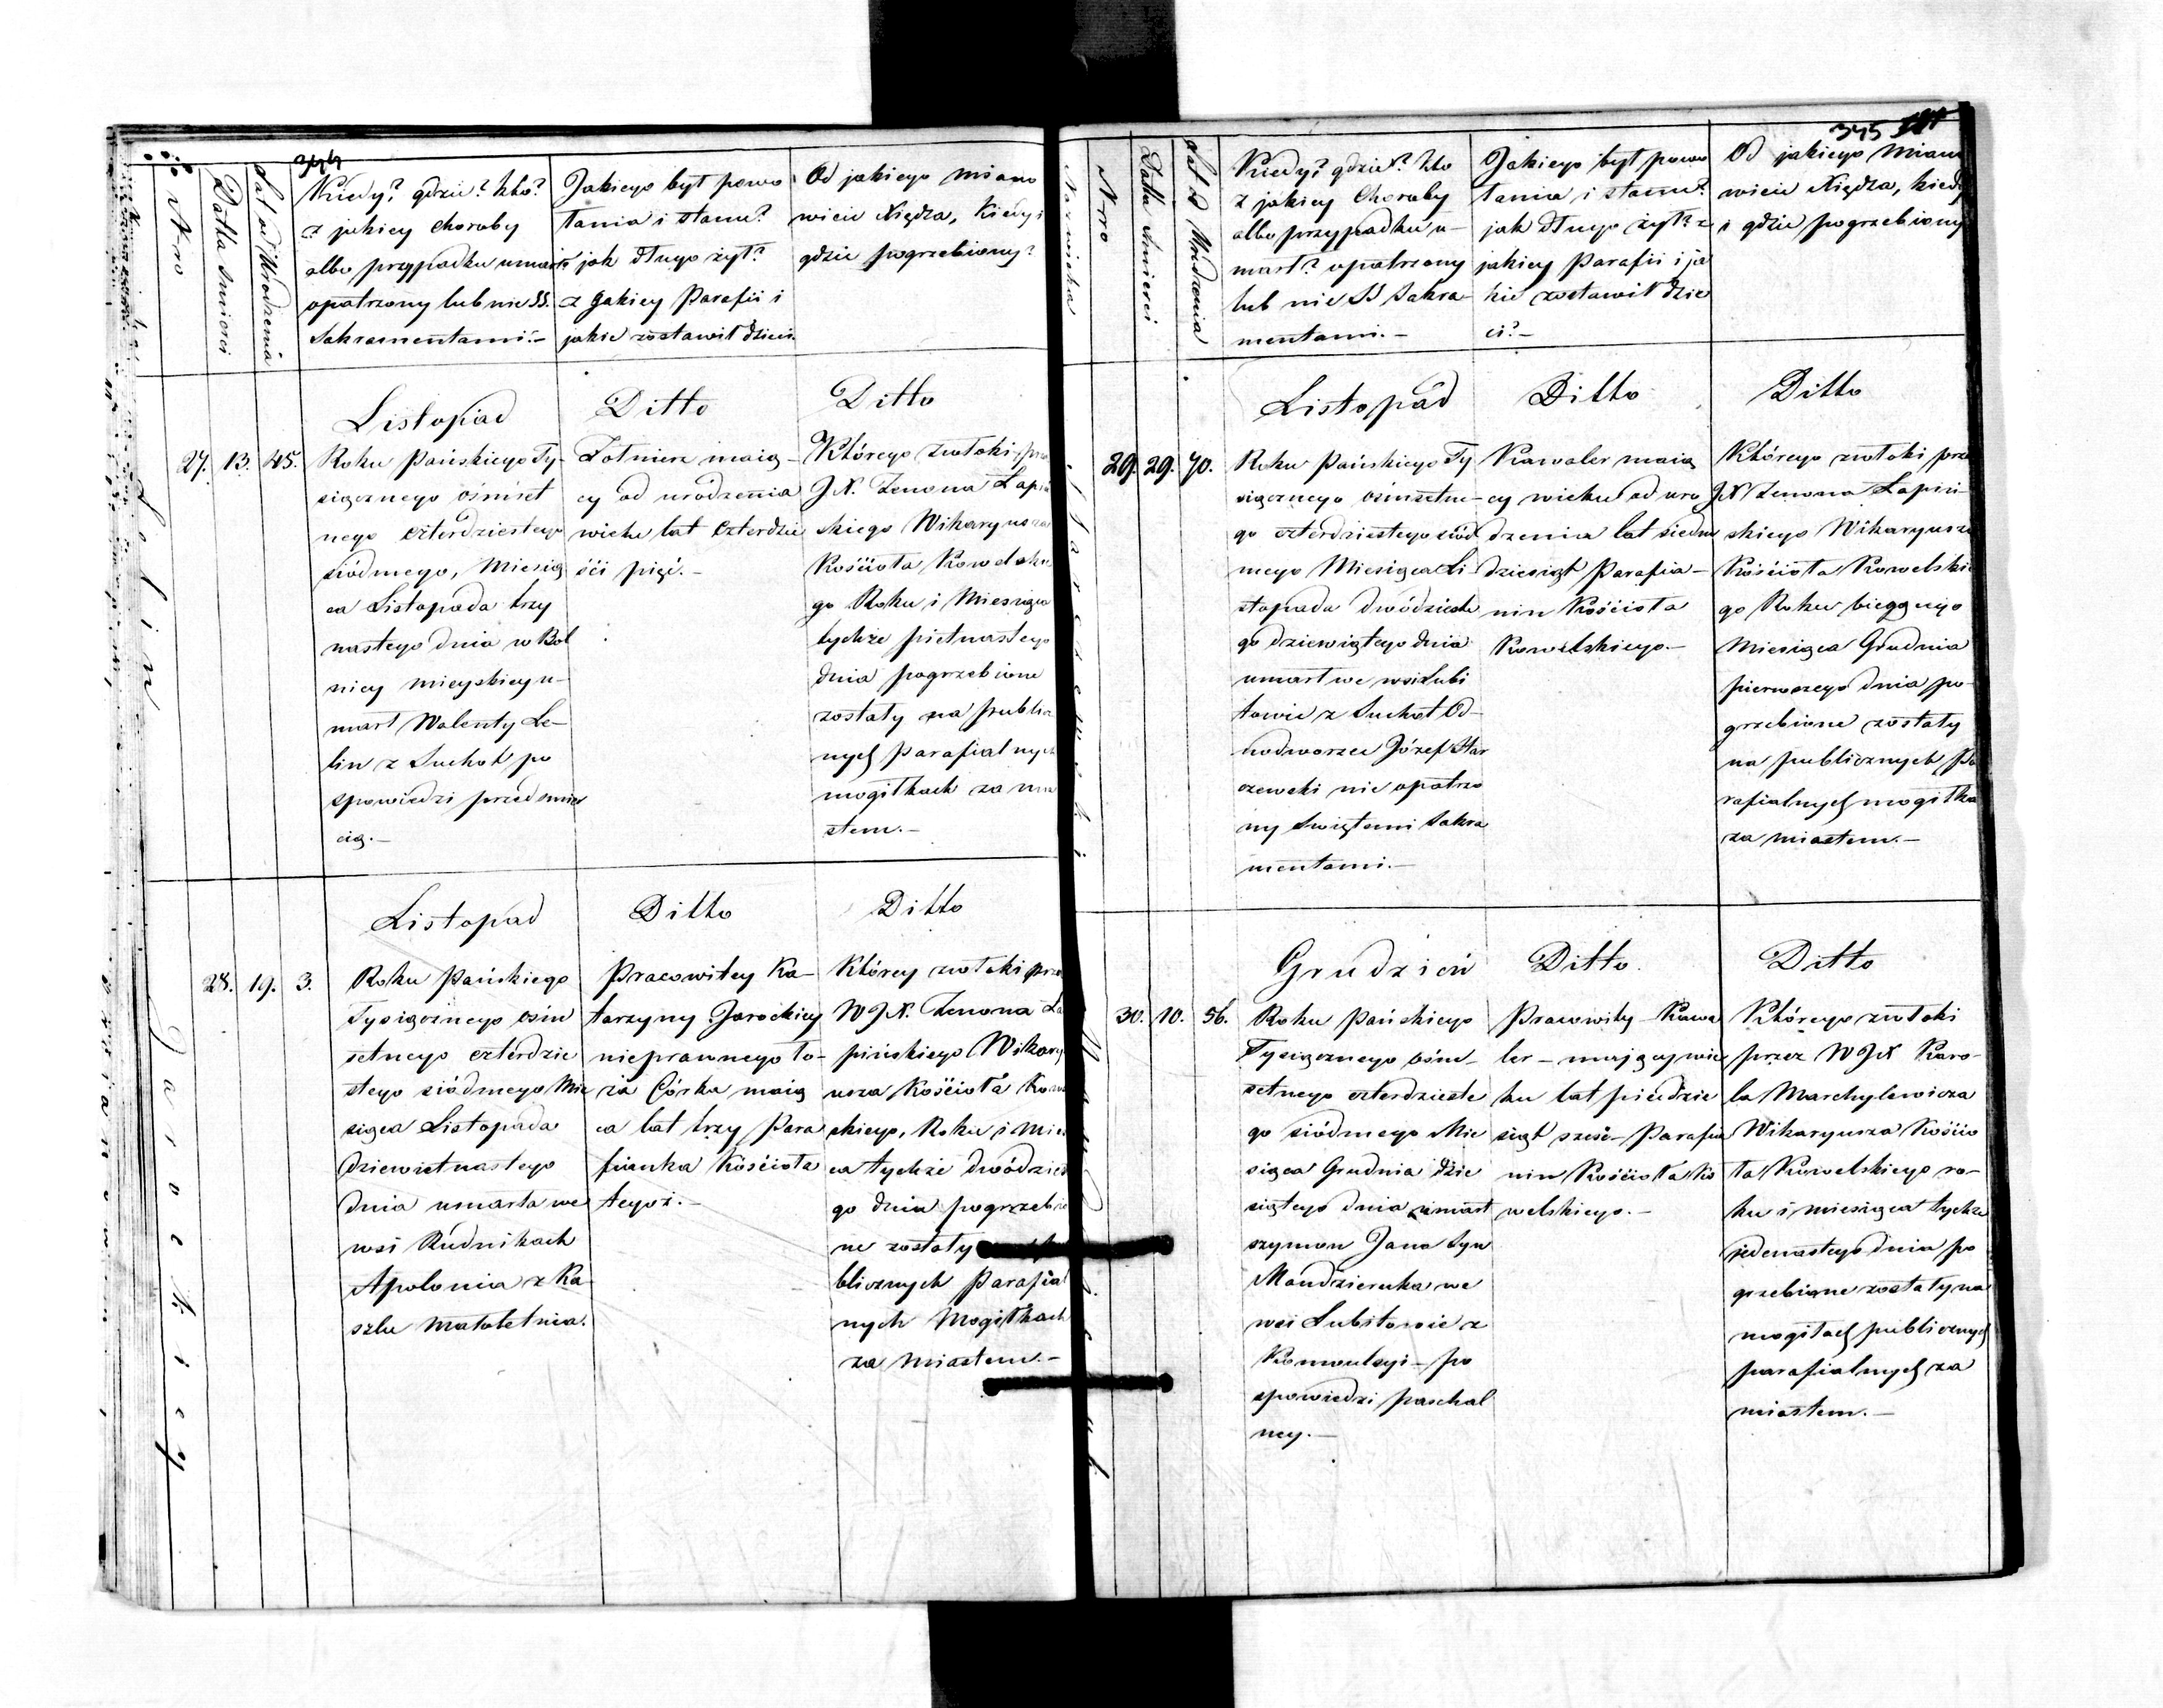 344
Nro
Datta Śmierci
Lat od Urodzenia
Kiedy? gdzie? kto?
z jakiey choroby
albo przypadku umarł?
opatrzony lub nie SS.
Sakramentami.-
Jakiego był powo
łania i stanu?
jak długo żył?
z jakiey Parafii i
jakie zostawił dzieci.
Od jakiego miano
wicie Xiędza, Kiedy i
gdzie pogrzebiony?
Lelin
27. 13. 45.
Listopad
Roku Pańskiego Ty-
siącznego ośmset
nego czterdziestego
siódmego, Miesią
ca Listopada trzy
nastego dnia w Bol
nicy mieyskiey u-
marł Walenty Le-
lin z Suchot po
spowiedzi przed śmier
cią.-
Ditto
Żołnierz maią-
cy od urodzenia
wieku lat czterdzie
ści pięć.-
Ditto
Którego zwłoki prze
J.X. Zenona Łapiń
skiego Wikaryusza
Kościoła Kowelskie
go Roku i Miesiąca
tychże pietnastego
dnia pogrzebione
zostały na publicz
nych Parafialnych
mogiłkach za mia
stem.-
Jarockiey
28. 19. 3.
Listopad
Roku Pańskiego
Tysiącznego ośm
setnego czterdzie
stego siódmego Mie
siąca Listopada
dziewiętnastego
dnia umarła we
wsi Rudnikach
Apolonia z Ka
szlu małoletnia.
Ditto
Pracowitey Ka-
tarzyny Jarockiey
nieprawnego ło-
ża Córka maią
ca lat trzy Para
fianka Kościoła
tegoż.-
Ditto
Którey zwłoki prze
W J.X. Zenona Ła
pińskiego Wikary
usza Kościoła Kowel
skiego, Roku i Miesią
ca tychże dwódzieste
go dnia pogrzebio
ne zostały
blicznych Parafial
nych Mogiłkach
za miastem.-
345
Nazwiska
Nrro
Datta Śmierci
Lat od Urodzenia
Kiedy? gdzie? kto
z jakiey Choroby
albo przypadku u-
marł? opatrzony
lub nie SS Sakra-
mentami.-
Jakiego był powo
łania i stanu?
jak długo żył? z
jakiey Parafii i ja
kie zostawił dzie
ci?-
Od jakiego Miano
wicie Xiędza, kiedy
i gdzie pogrzebiony
29. 29. 70.
Listopad
Roku Pańskiego Ty
siącznego ośmsetne-
go czterdziestego siód
mego Miesiąca Li
stopada dwódzieste
go dziewiątego dnia
umarł we wsi Lubi
towie z Suchot Od-
nodworzec Józef Har
czewski nie opatrzo
ny Swiętemi Sakra
mentami.-
Ditto
Kawaler maią
cy wieku od uro
dzenia lat siedm
dziesiąt Parafia-
nin Kościoła
Kowelskiego.-
Ditto
Którego zwłoki prze
JX Zenona Łapiń-
skiego Wikaryusza
Kościoła Kowelskie
go Roku bieżącego
Miesiąca Grudnia
pierwszego dnia po-
grzebione zostały
na publicznych Pa
rafialnych mogiłka
za miastem.-
30. 10. 56.
Grudzień
Roku Pańskiego
Tysiącznego ośm-
setnego czterdzieste
go siódmego Mie
siąca Grudnia dzie
siątego dnia umarł
szymon Jana Syn
Mandzieruka we
wsi Lubitowie z
Konwulsyi - po
spowiedzi paschal
ney.-
Ditto
Pracowity Kawa
ler - mający wie
ku lat piedzie
siąt sześć - Parafia
nin Kościoła Ko
welskiego.-
Ditto
Którego zwłoki
przez WJX Karo-
la Marchylewicza
Wikaryusza Kościo
ła Kowelskiego ro-
ku i miesiąca tychże
jedenastego dnia po
grzebione zostały na
mogiłach publicznych
parafialnych za
miastem.-